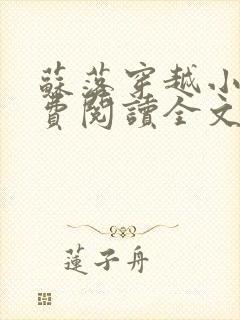 蘇落穿越小
費閱讀全文
蓮子舟